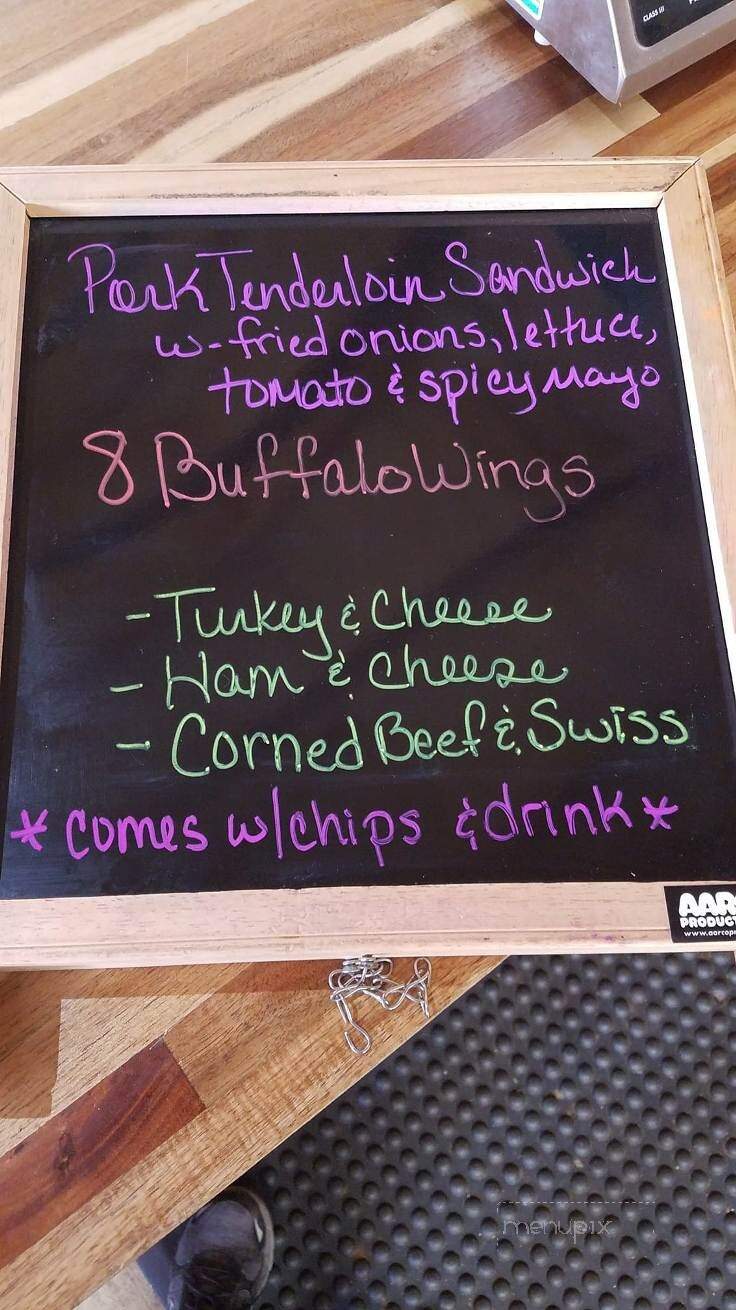 CLASS III
Pork Tenderloin Sandwich
w-fried onions, lettuce,
tomato & spicy mayo
8 Buffalo Wings
- Turkey & Cheese
- Ham & Cheese
- Corned Beef & Swiss
* comes w/chips & drink *
PRODUCT
menupix